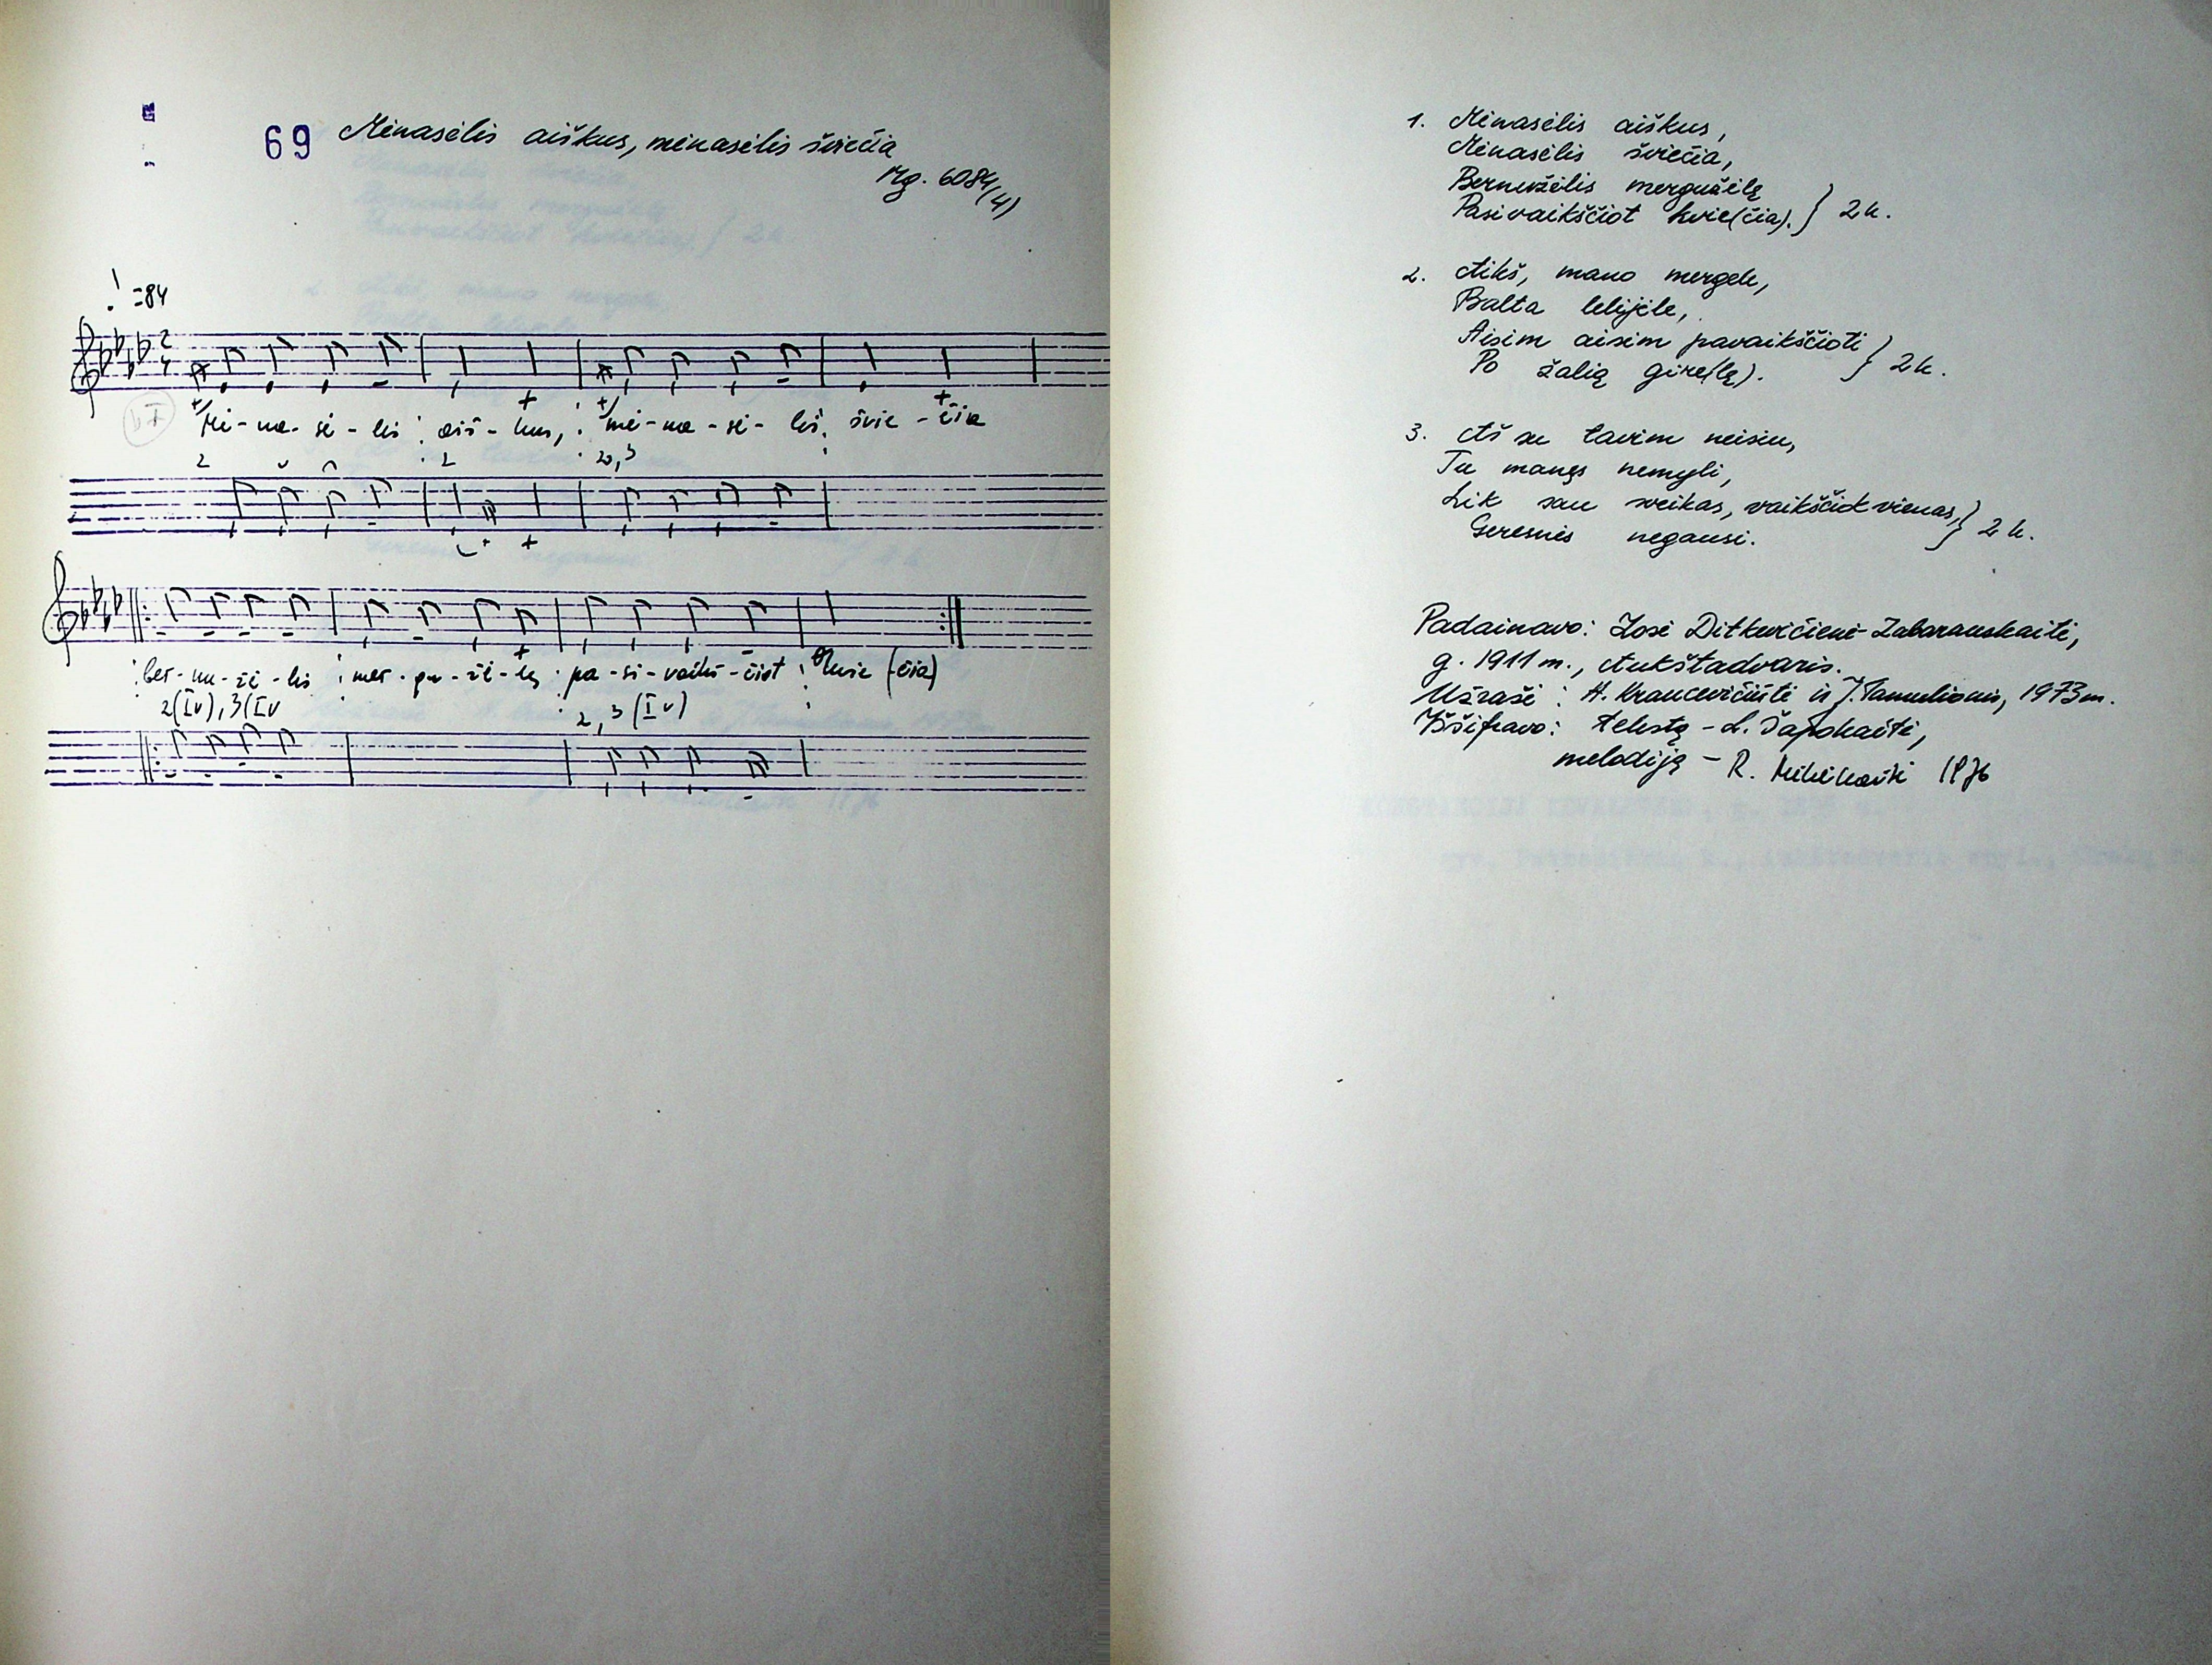 69 Mėnasėlis aiškus, mėnasėlis šviečia
Mg. 6084/(4)
=84
2
4
Mė-na-sė-lis aiš-kus, mė-na-sė-lis, švie-čia
2 2 2,3
ber-nu-žė-lis mer-gu-žė-lę pa-si-vaikš-čiot kvie(-čia)
2(IV), 3(IV 2, 3(IV)
1. Mėnasėlis aiškus,
Mėnasėlis šviečia,
Bernužėlis mergužėlę
Pasivaikščiot kvie(čia). } 2k.
2. Aikš, mano mergele,
Balta lelijėle,
Aisim aisim pavaikščioti
Po žalią gire(lę). } 2k.
3. Aš su tavim neisiu,
Tu manęs nemyli,
Lik sau sveikas, vaikščiok vienas,
Geresnės negausi. } 2k.
Padainavo: Zosė Ditkevičienė-Zabarauskaitė,
g. 1911 m., Aukštadvaris.
Užrašė: A. Krancevičiūtė ir J. Tamulionis, 1973m.
Iššifravo: tekstą - L. Sapokaitė,
melodiją - R. 1976